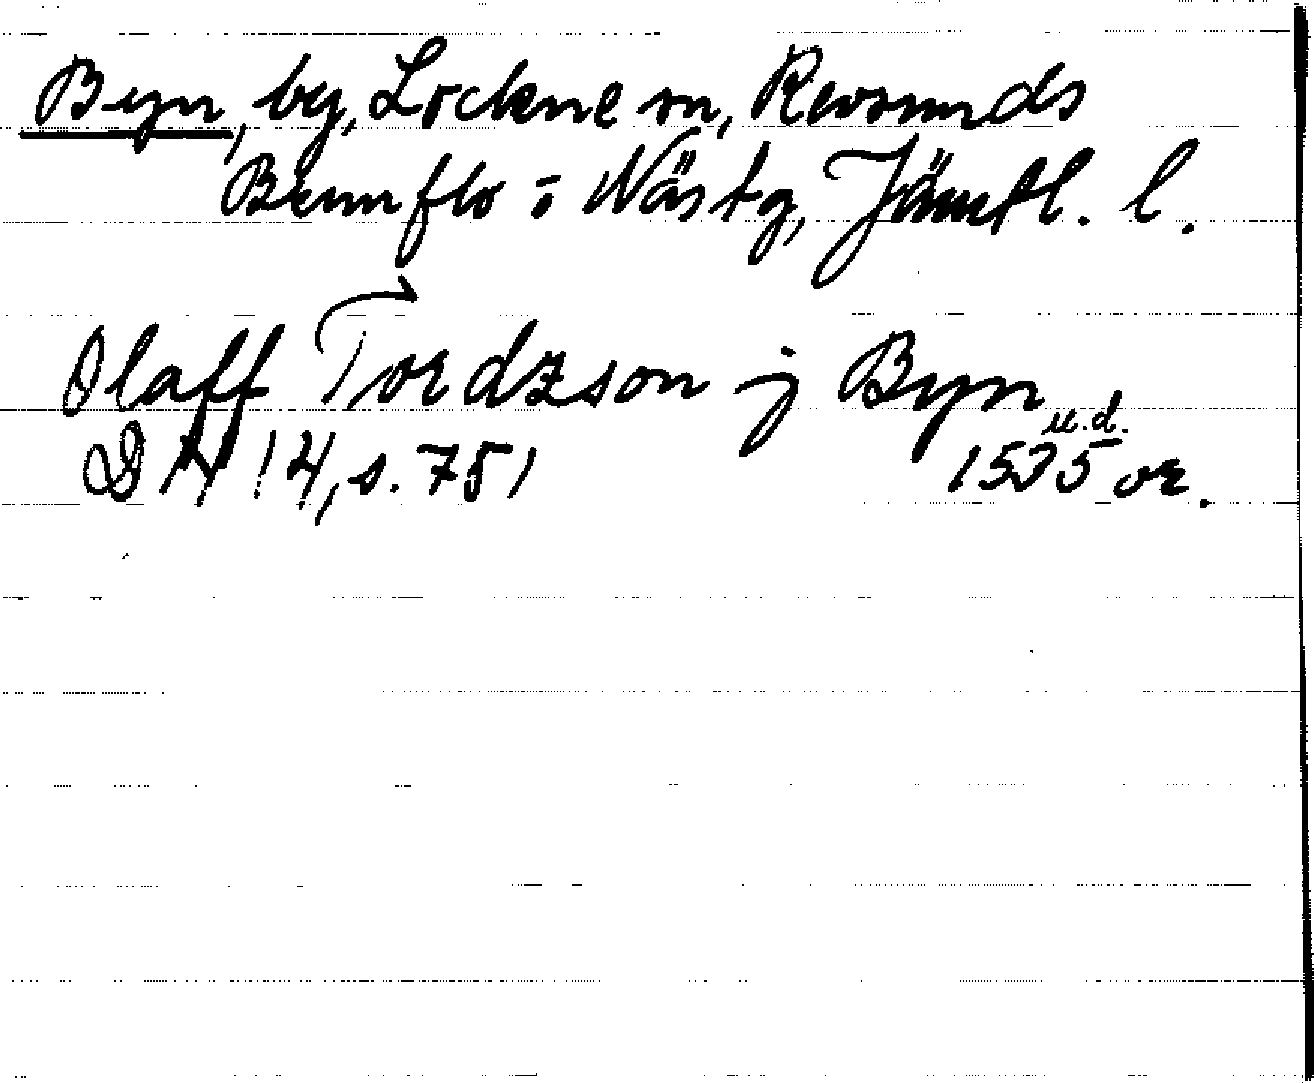 Byn, by, Lockne sn, Revsunds
Brunflo o Näs tg, Jämtl. l.
Olaff Tordzson j Byn
u.d.
DN 14, s. 751 1535 or.